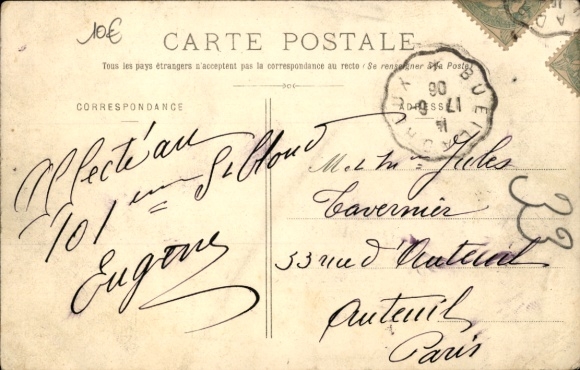 10€
CARTE POSTALE
Tous les pays étrangers n'acceptent pas la correspondance au recto (Se renseigner à la Poste)
CORRESPONDANCE
ADRESSE
BUEIL
17 6
06
101 St Cloud
Eugène
M et Mme Jules
Tavernier
33 rue d'Auteuil
Auteuil
Paris
33